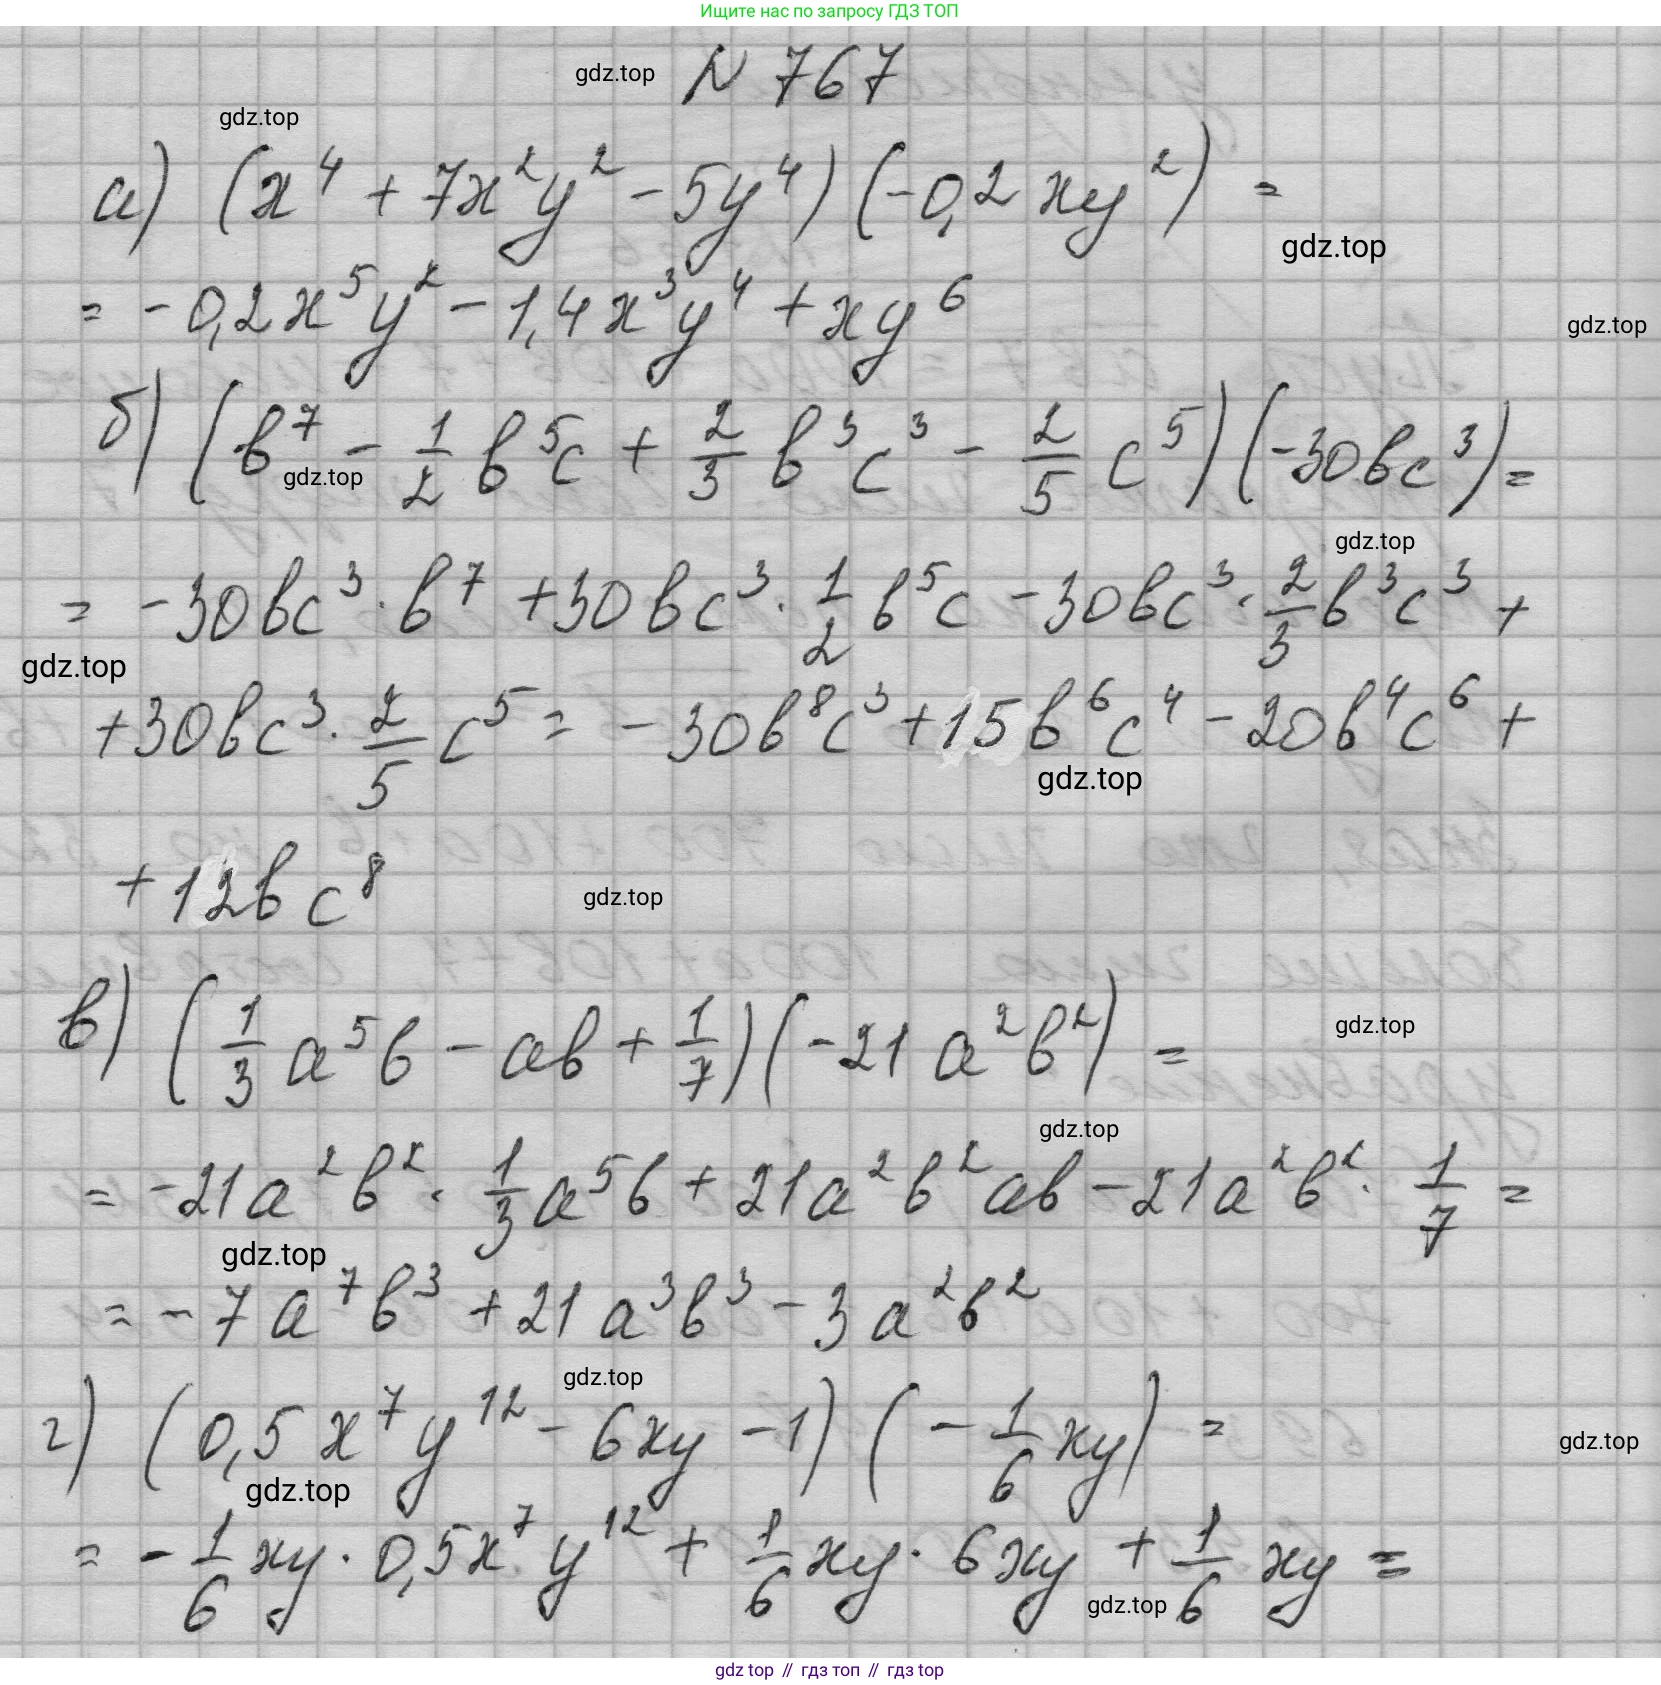 Ищите нас по запросу ГДЗ ТОП
gdz.top N 767
gdz.top
а) (x⁴ + 7x²y² - 5y⁴) (-0,2 xy²) =
gdz.top
= -0,2x⁵y² - 1,4x³y⁴ + xy⁶
gdz.top
б) (b⁷ - 1/2 b⁵c + 2/3 b³c³ - 2/5 c⁵) (-30bc³) =
gdz.top
gdz.top
= -30bc³ · b⁷ + 30bc³ · 1/2 b⁵c - 30bc³ · 2/3 b³c³ +
gdz.top
+ 30bc³ · 2/5 c⁵ = -30b⁸c³ + 15b⁶c⁴ - 20b⁴c⁶ +
gdz.top
+ 12bc⁸
gdz.top
в) (1/3 a⁵b - ab + 1/7) (-21 a²b²) =
gdz.top
gdz.top
= -21a²b² · 1/3 a⁵b + 21a²b² ab - 21a²b² · 1/7 =
gdz.top
= -7a⁷b³ + 21a³b³ - 3a²b²
gdz.top
г) (0,5x⁷y¹² - 6xy - 1) (-1/6 xy) =
gdz.top
gdz.top
= -1/6 xy · 0,5x⁷y¹² + 1/6 xy · 6xy + 1/6 xy =
gdz.top
gdz top // гдз топ // gdz top